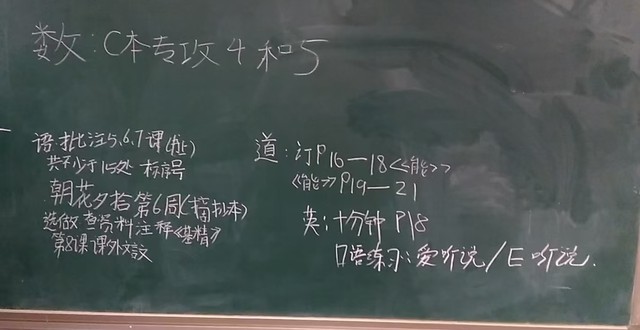 数:C本专攻4和5
语:批注5、6、7课(趾)
共不少于15处 标序号
朝花夕拾第6周(摘抄本)
选做 查资料注释《基精》
第8课课外文言文
道:订P16—18《能》
《能》P19—21
英:十分钟 P18
口语练习:爱听说/E听说.